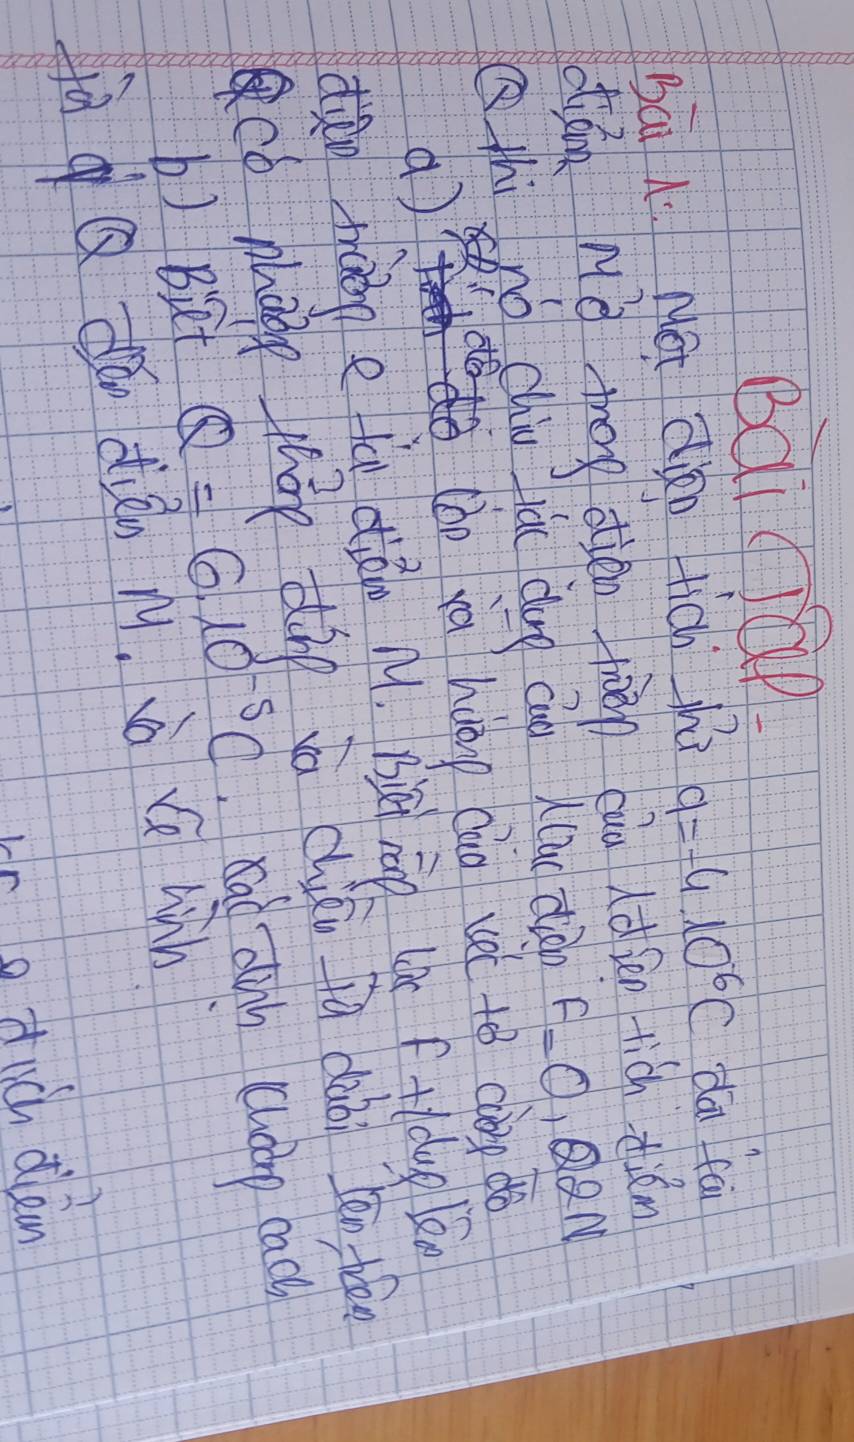 Bài Tập -
Bài 1: Một điện tích thử q=-4.10⁻⁶C đặt tại
điểm M ở trong điện trường của 1 điện tích điểm
Q thì nó chịu tác dụng của lực điện F=0,02N
a) Xđ độ lớn và hướng của véc tơ cường độ
điện trường e tại điểm M. Biết rằng lực F t/dụng lên
q Có phương thẳng đứng và chiều từ dưới lên trên
b) Biết Q = 6.10⁻⁵C. Xác định khoảng cách
từ Q đến điểm M. và vẽ hình
điểm